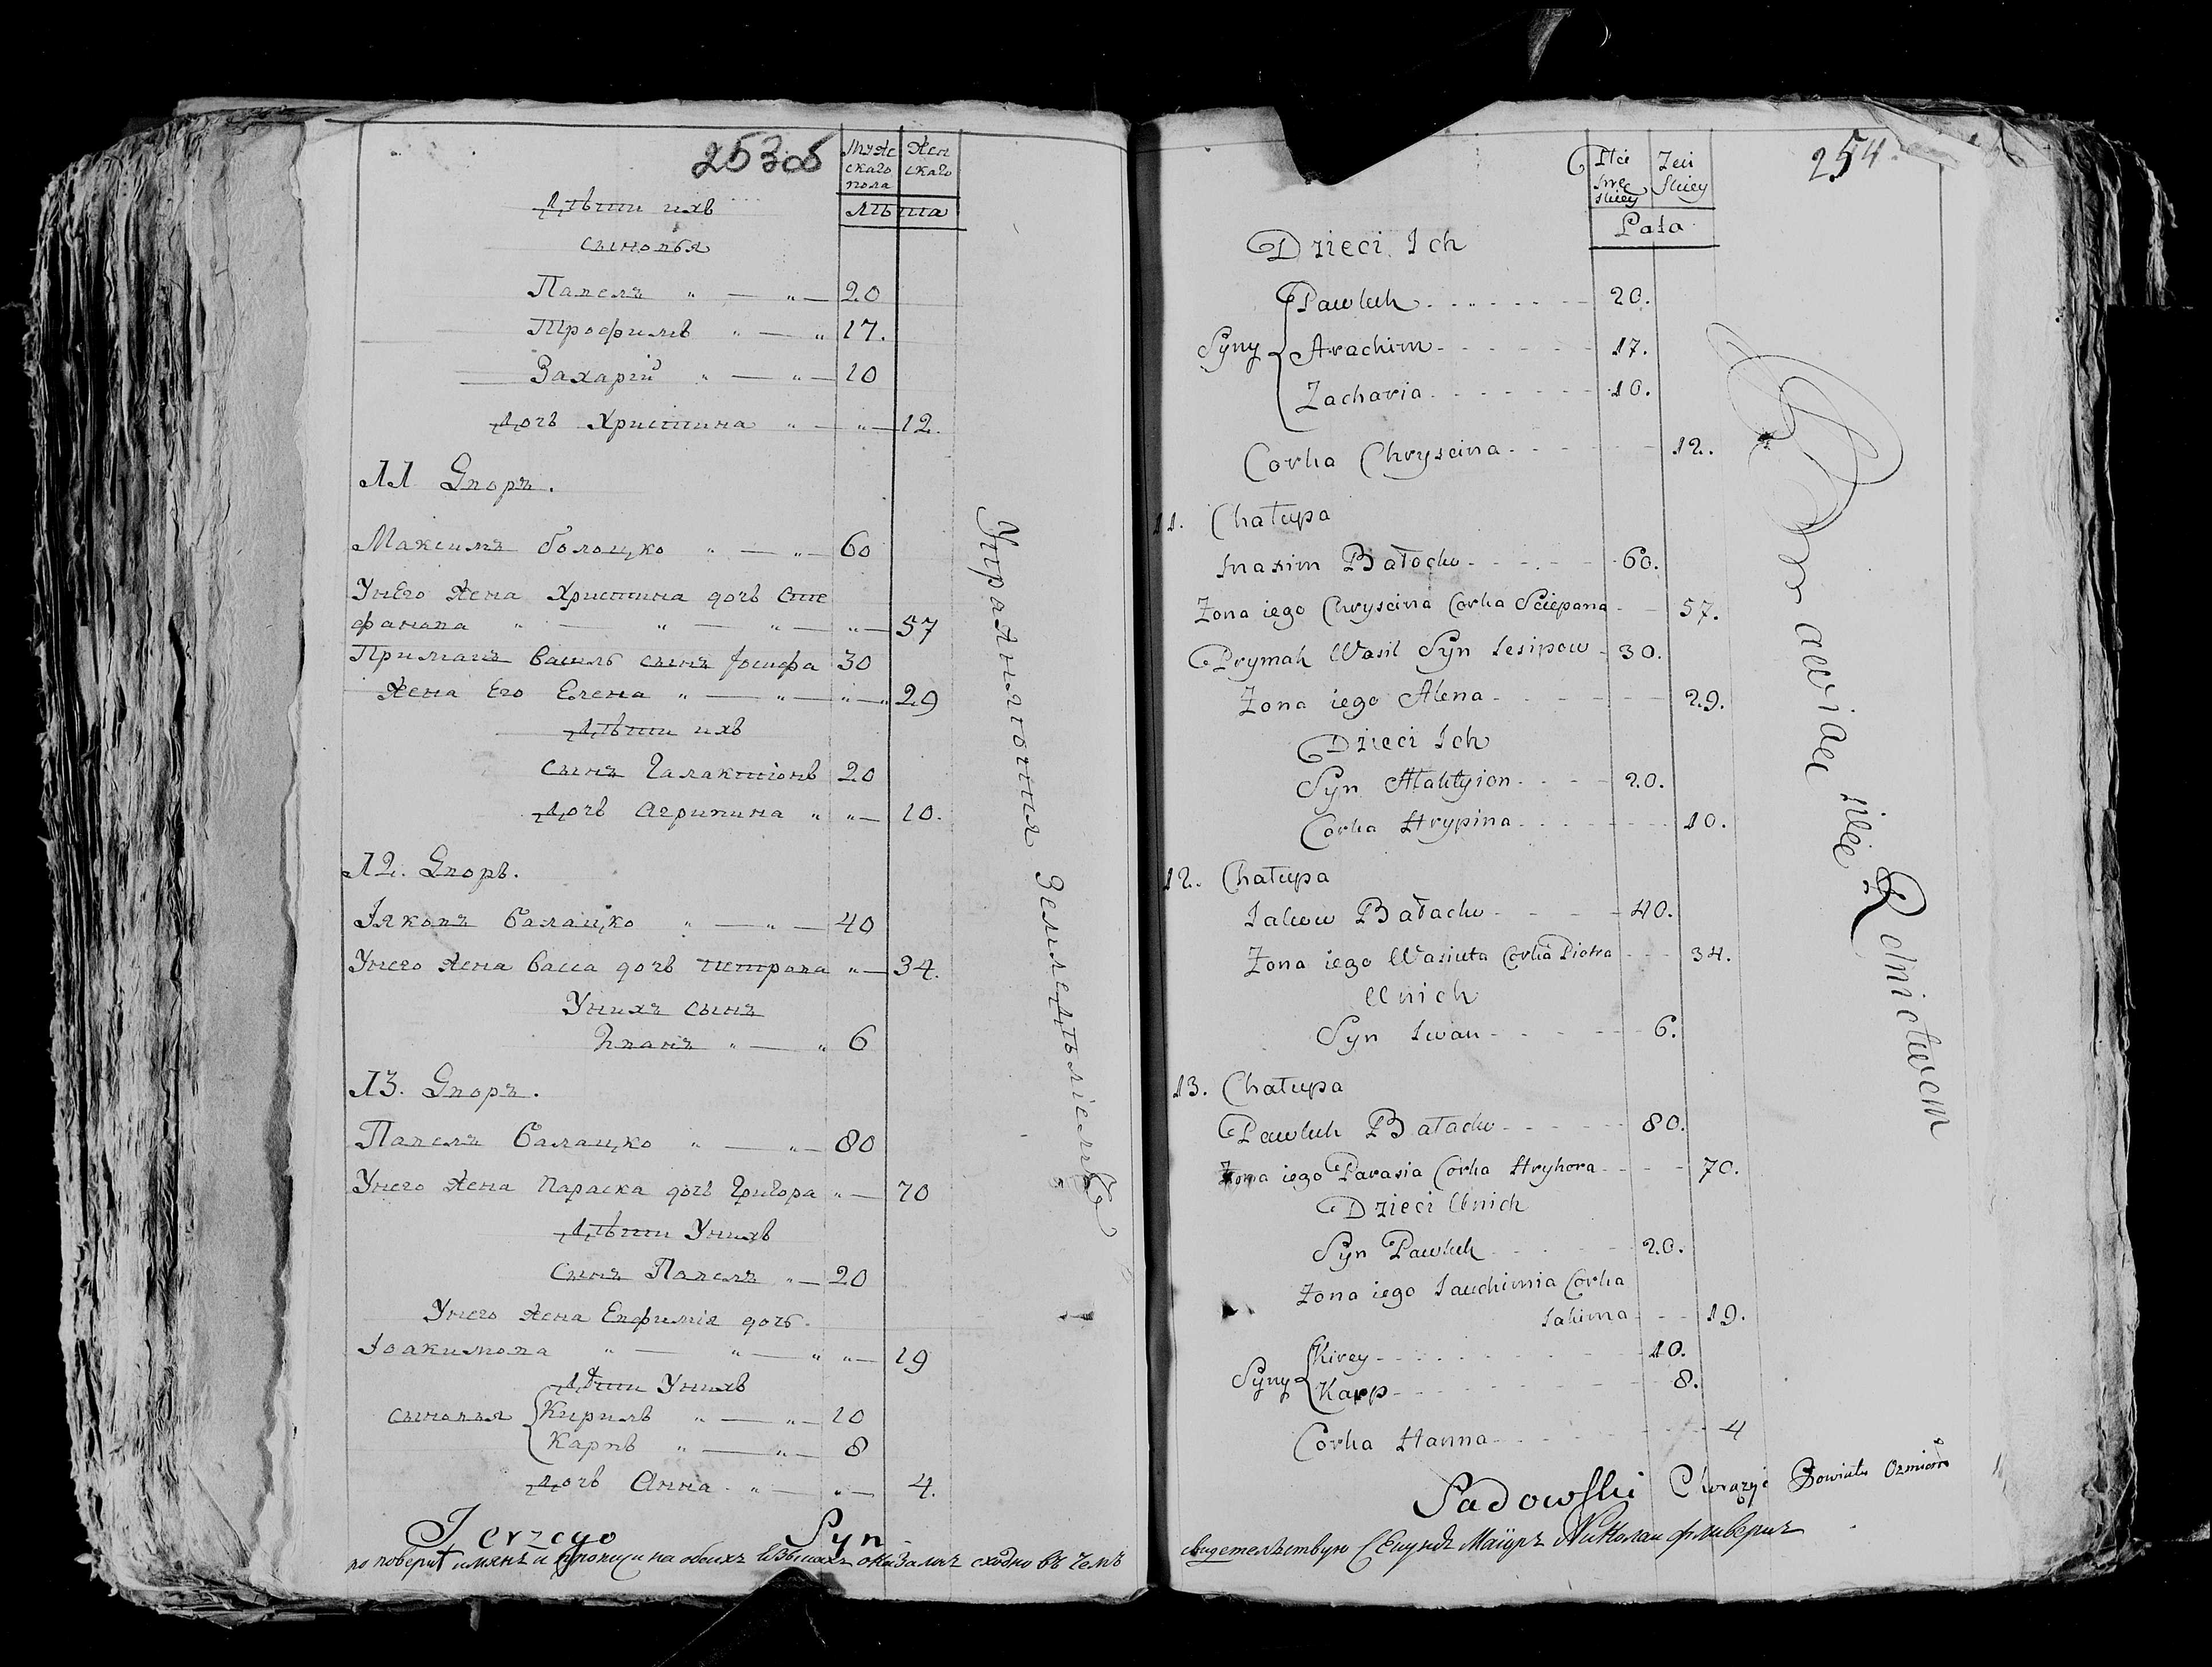 253об
Мужескаго пола Женскаго
Лѣта
Дѣти ихъ
сыновья
Павелъ " — " — 20
Трофимъ " — " 17.
Захарій " — " — 10
дочь Христина " — " — 12.
11 Дворъ.
Максимъ болоцко " — " — 60
Унего жена Христина дочь Сте
фанова " — " — " — " — 57
Примакъ василь сынъ Іосифа 30
жена Его Елена " — " — " — " 29
дѣти ихъ
сынъ Галактіонъ 20
дочь Агрипина " " — 10.
12. Дворъ.
Іяковъ балацко " — " — 40
Унего жена васса дочь петрова " — 34.
Унихъ сынъ
Иванъ " — " 6
13. Дворъ.
Павелъ балацко " — " — 80
Унего жена параска дочь Григора " — 70
дѣти Унихъ
сынъ Павелъ " — 20
Унего жена Евфимія дочь
Іоакимова " — " — " " — 19
дѣти Унихъ
сыновья Кирилъ " — " — 10
Карпъ " — " — 8
дочь Анна " — " — 4.
Упражняются земледѣліемъ
Jerzego Syn
по поверке имянъ и прописи на обеихъ языкахъ оказалис сходно въ чемъ
254.
Płci męskiey Żeńskiey
Lata
Dzieci Ich
Syny Pawluk 20.
Arachim 17.
Zacharia 10.
Corka Chryscina 12.
11. Chałupa
Maxim Bałocko 60.
Zona iego Chryscina Corka Sciepana 57.
Prymak Wasil Syn Iesipow 30.
Zona iego Alena 29.
Dzieci Ich
Syn Hałaktyion 20.
Corka Hrypina 10.
12. Chałupa
Iakow Bałacko 40.
Zona iego Wasiuta Corka Piotra 34.
U nich
Syn Iwan 6.
13. Chałupa
Pawluk Bałacko 80.
Zona iego Parasia Corka Hryhora 70.
Dzieci U nich
Syn Pawluk 20.
Zona iego Iauchimia Corka
Iakima 19.
Syny Kirey 10.
Karp 8.
Corka Hanna 4
Bawiąc się Rolnictwem
Sadowski Chorąży Powiatu Ozmiań
свидетелствую Секундъ Маіоръ Николаи